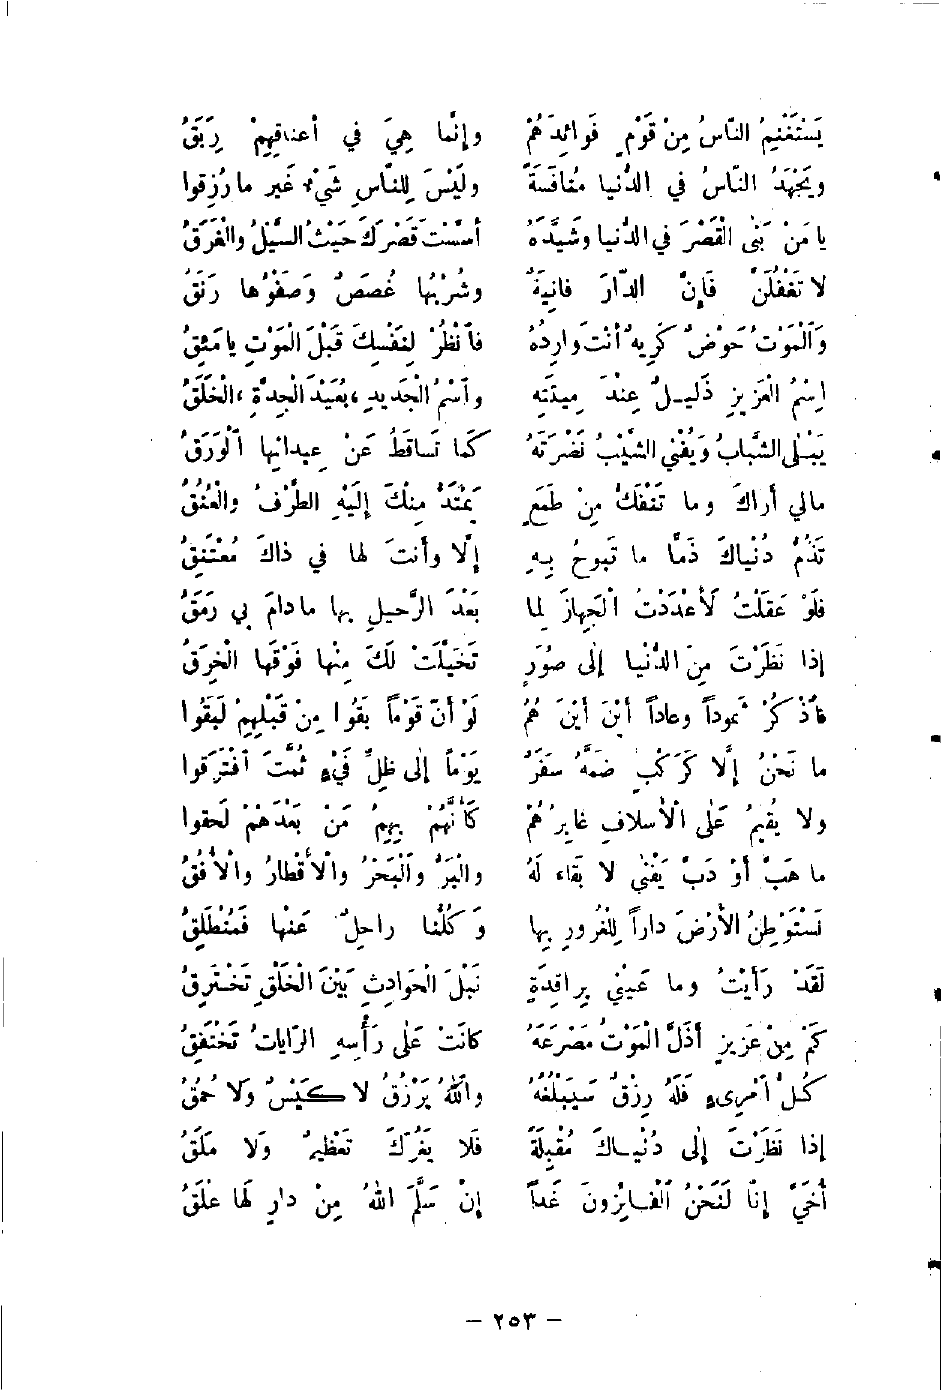 يَسْتَغْنِمُ النّاسُ مِنْ قَوْمٍ فَوائِدَهُمْ وإنَّما هِيَ في أعناقِهِمْ رِبَقُ
ويَجْهَدُ النّاسُ في الدُّنيا مُنافَسَةً ولَيْسَ لِلنّاسِ شَيْءٌ غَير ما رُزِقوا
يا مَنْ بَنى القَصْرَ في الدُّنيا وشَيَّدَهُ أسَّسْتَ قَصْرَكَ حَيْثُ السَّيْلُ والْغَرَقُ
لا تَغْفُلَنَّ فَإنَّ الدّارَ فانِيَةٌ وشُرْبُها غُصَصٌ وَصَفْوُها رَنَقُ
وَالْمَوْتُ حَوْضٌ كَرِيهٌ أنْتَ وارِدُهُ فَانْظُرْ لِنَفْسِكَ قَبْلَ الْمَوْتِ يا مَئِقُ
اِسْمُ الْعَزِيزِ ذَلِيـلٌ عِنْدَ مِيتَتِهِ وأسْمُ الْجَدِيدِ ، بُعَيْدَ الْجِدَّةِ ، الْخَلَقُ
يَبْـلَى الشَّبابُ ويُفْنِي الشَّيْبُ نَضْرَتَهُ كَما تَساقَطُ عَنْ عِيدانِها الْوَرَقُ
مالي أراكَ وما تَنْفَكُّ مِنْ طَمَعٍ يَمْتَدُّ مِنْكَ إلَيْهِ الطَّرْفُ والْعُنُقُ
تَذُمُّ دُنْياكَ ذَمًّا ما تَبوحُ بِـهِ إلّا وأنْتَ لها في ذاكَ مُعْتَنِقُ
فلَوْ عَقَلْتُ لَأَعْدَدْتُ الْجَهازَ لِما بَعْدَ الرَّحيلِ بها ما دامَ بي رَمَقُ
إذا نَظَرْتَ مِنَ الدُّنْيا إلى صُوَرٍ تَخَيَّلَتْ لَكَ مِنْها فَوْقَها الْخِرَقُ
فأذْكُرْ ثموداً وعاداً أيْنَ أيْنَ هُمُ لَوْ أنَّ قَوْماً بَقُوا مِنْ قَبْلِهِمْ لَبَقُوا
ما نَحْنُ إلَّا كَرَكْبٍ ضَمَّهُ سَفَرٌ يَوْماً إلى ظِلِّ فَيْءٍ ثُمَّتَ افْتَرَقوا
ولا يُقِيمُ عَلَى الْأسْلافِ غابِرُهُمْ كَأنَّهُمْ بِهِمُ مَنْ بَعْدَهُمْ لَحِقوا
ما هَبَّ أوْ دَبَّ يَفْنى لا بَقاء لَهُ والبَرُّ والْبَحْرُ والأقْطارُ والْأفُقُ
نَسْتَوْطِنُ الأرْضَ داراً لِلْغُرورِ بِها وَكُلُّنا راحِلٌ عَنْها فَمُنْطَلِقُ
لَقَدْ رَأيْتُ وما عَيْني بِراقِدَةٍ نَبْلَ الْحَوادِثِ بَيْنَ الْخَلْقِ تَخْتَرِقُ
كَمْ مِنْ عَزيزٍ أذَلَّ الْمَوْتُ مَصْرَعَهُ كانَتْ عَلى رَأْسِهِ الرّاياتُ تَخْتَفِقُ
كُلُّ امْرِىءٍ فَلَهُ رِزْقٌ سَيَبْلُغُهُ واللّٰهُ يَرْزُقُ لا كَيْسٌ وَلا حُمْقُ
إذا نَظَرْتَ إلى دُنْيـاكَ مُقْبِلَةً فَلا يَغُرَّكَ تَعْظِيمٌ وَلا مَلَقُ
أُخَيَّ إنّا لَنَحْنُ الفـائِزونَ غَداً إنْ سَلَّمَ اللهُ مِنْ دارٍ لَها عَلَقُ
– ٢٥٣ –